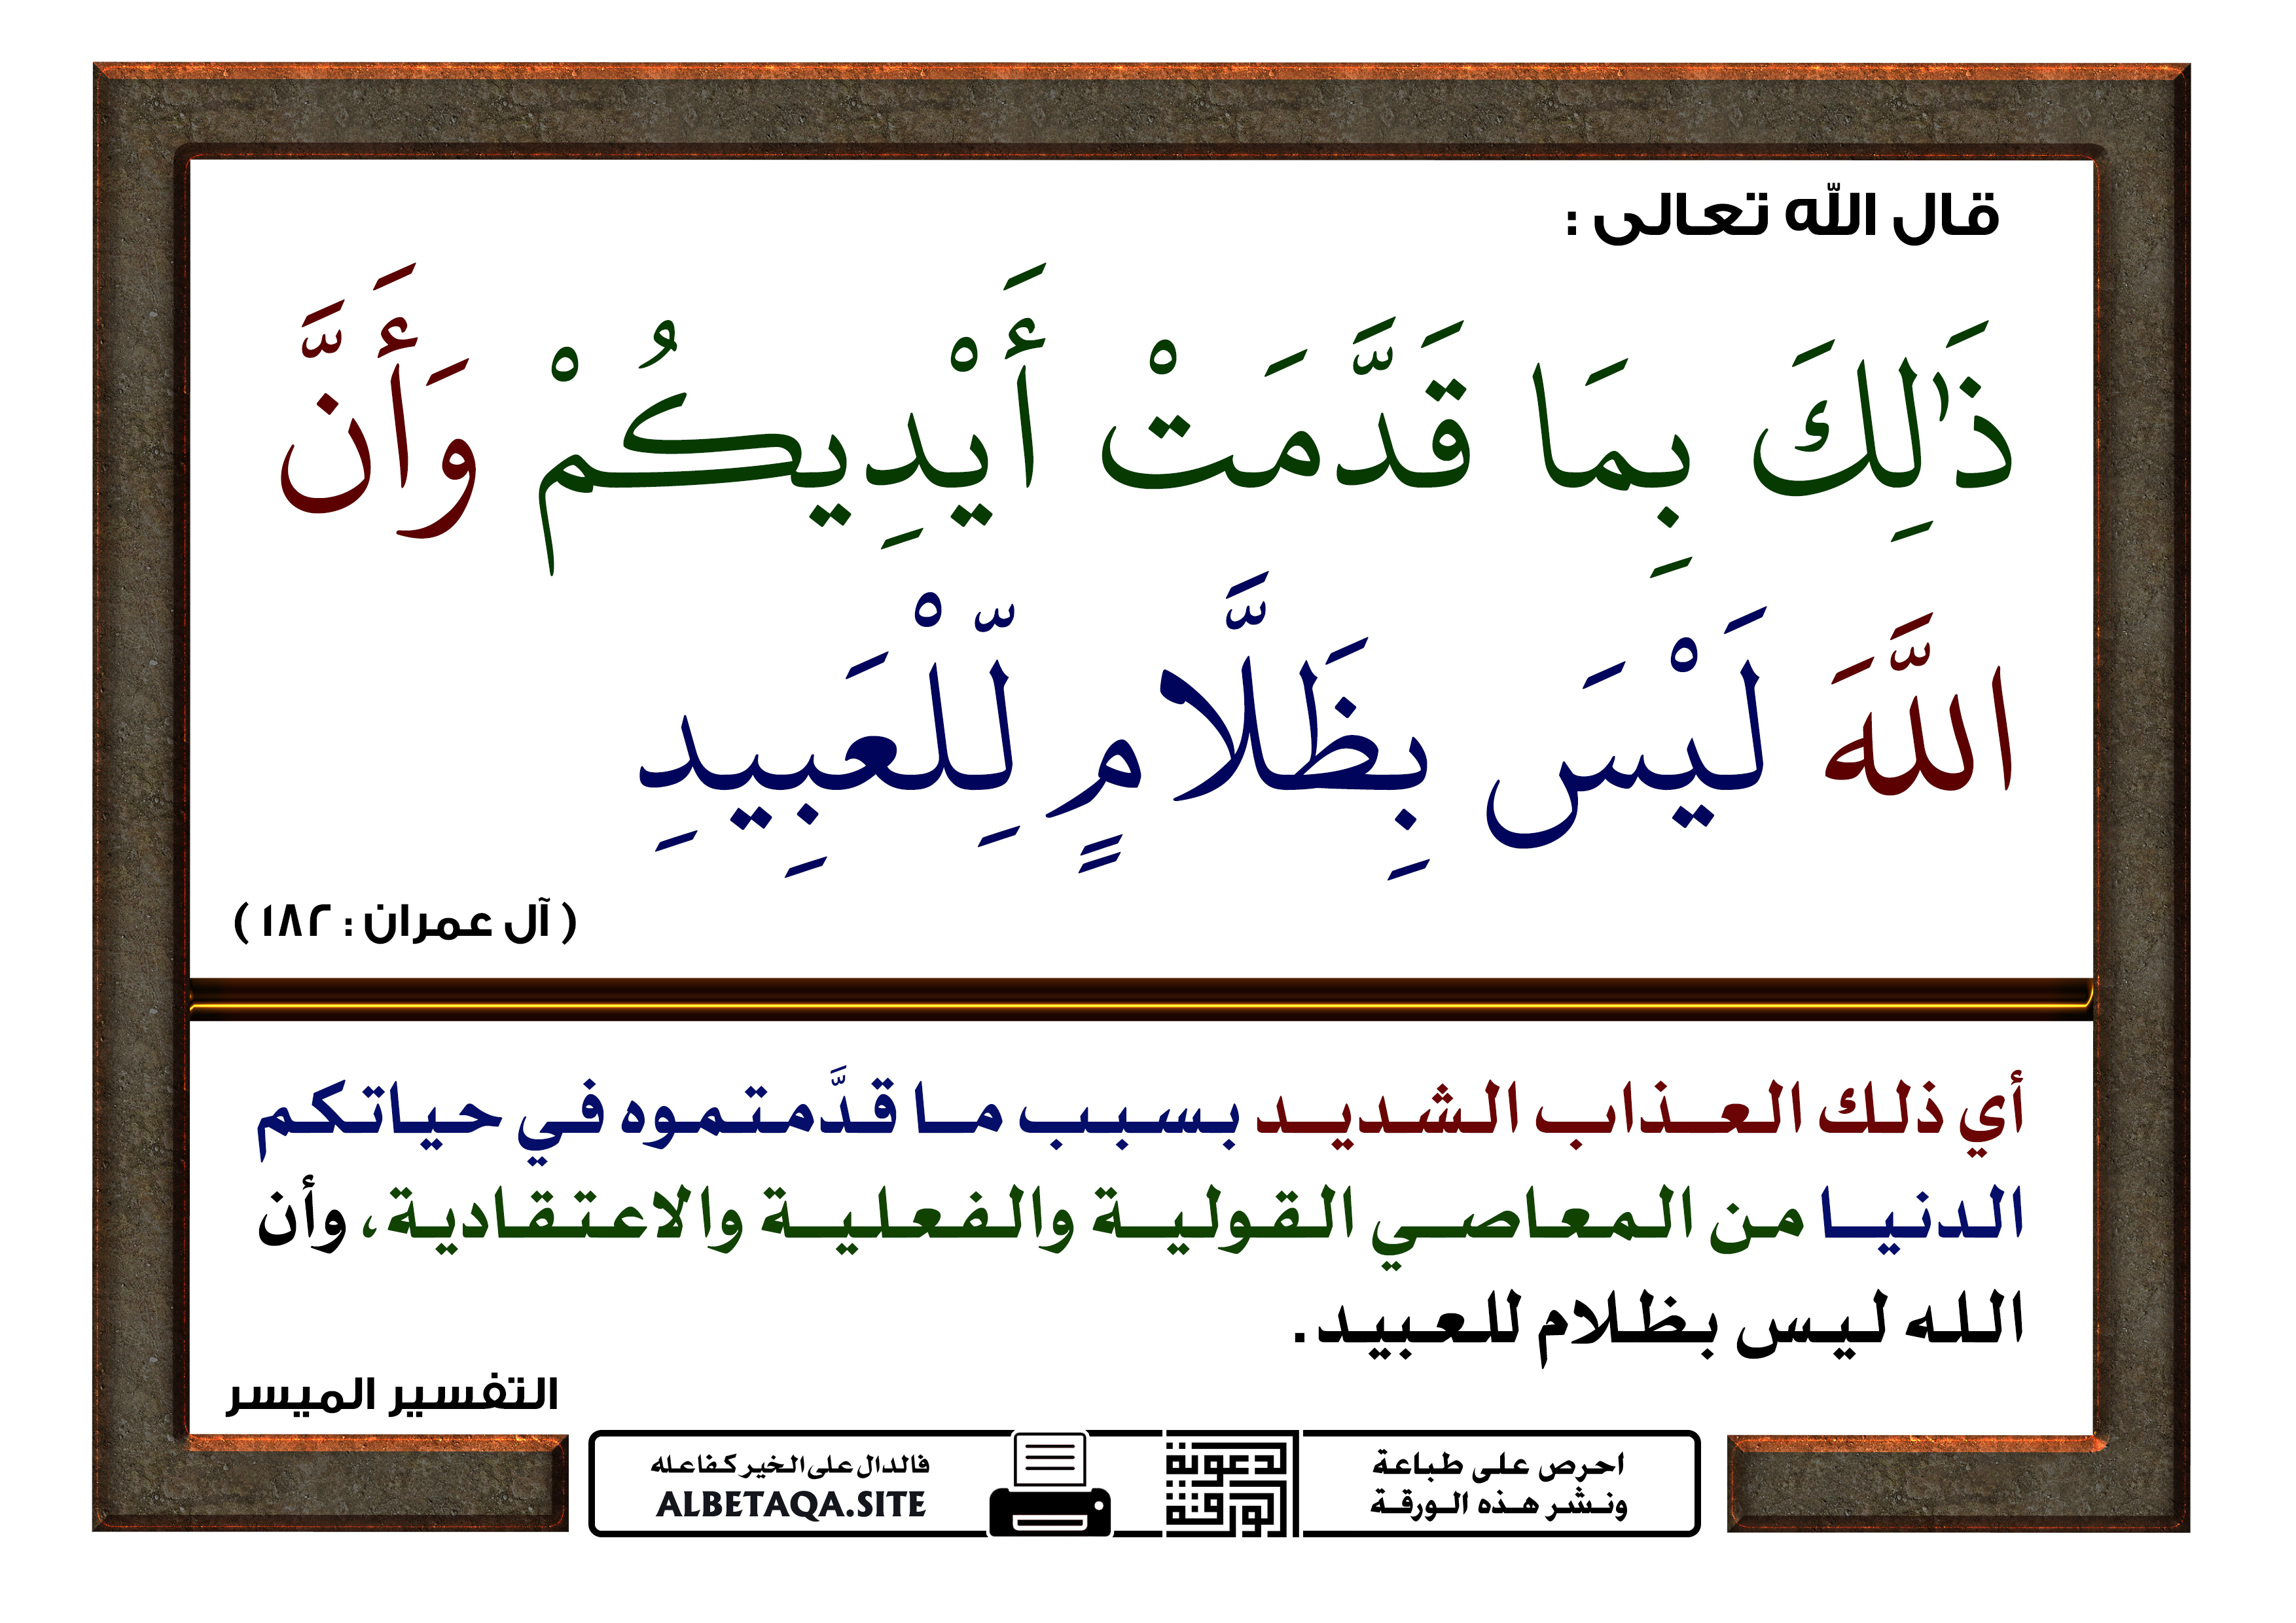 قال الله تعالى :
ذَٰلِكَ بِمَا قَدَّمَتْ أَيْدِيكُمْ وَأَنَّ
اللَّهَ لَيْسَ بِظَلَّامٍ لِّلْعَبِيدِ
( آل عمران : ١٨٢ )
أي ذلك العذاب الشديد بسبب ما قدَّمتموه في حياتكم
الدنيا من المعاصي القولية والفعلية والاعتقادية، وأن
الله ليس بظلام للعبيد.
التفسير الميسر
احرص على طباعة
ونشر هذه الورقة
الورقة
الدعوية
فالدال على الخير كفاعله
ALBETAQA.SITE